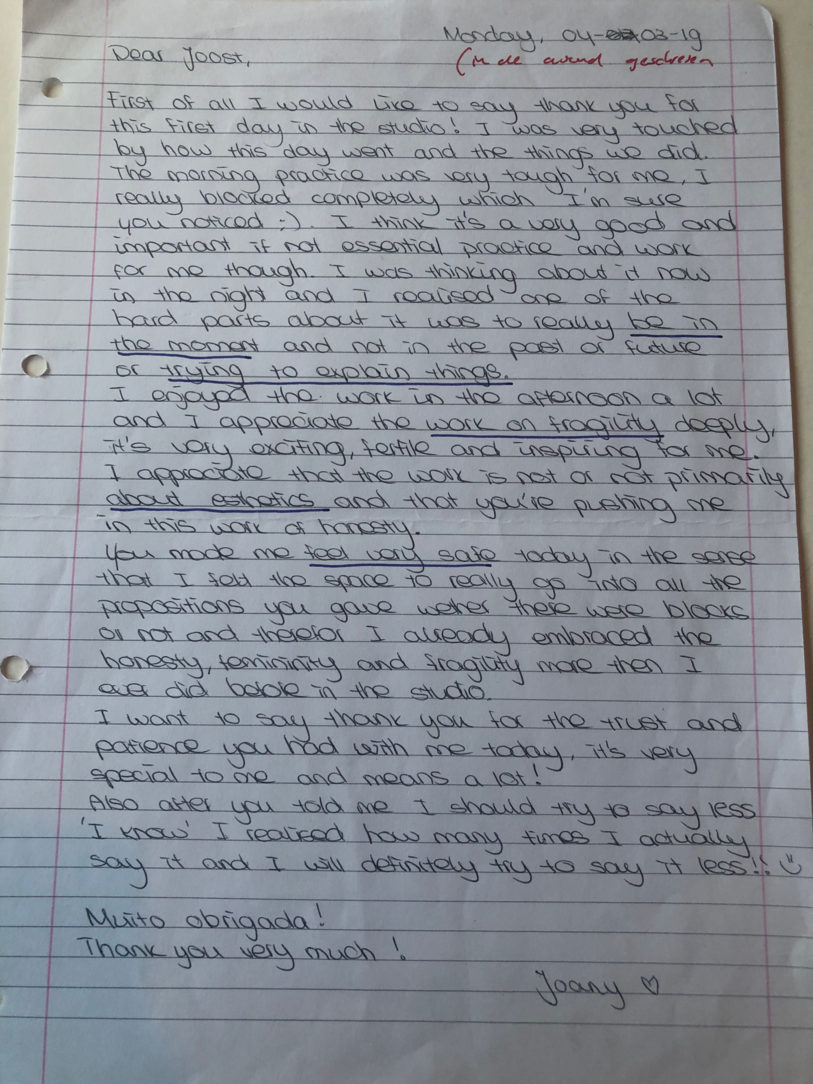 Monday, 04-03-19
Dear Joost,
(in de avond geschreven
First of all I would like to say thank you for
this first day in the studio! I was very touched
by how this day went and the things we did.
The morning practice was very tough for me, I
really blocked completely which I'm sure
you noticed :). I think it's a very good and
important if not essential practice and work
for me though. I was thinking about it now
in the night and I realised one of the
hard parts about it was to really be in
the moment and not in the past or future
or trying to explain things.
I enjoyed the work in the afternoon a lot
and I appreciate the work on fragility deeply,
it's very exciting, fertile and inspiring for me.
I appreciate that the work is not or not primarily
about esthetics and that you're pushing me
in this work of honesty.
You made me feel very safe today in the sense
that I felt the space to really go into all the
propositions you gave wether there were blocks
or not and therefor I already embraced the
honesty, femininity and fragility more then I
ever did before in the studio.
I want to say thank you for the trust and
patience you had with me today, it's very
special to me and means a lot!
Also after you told me I should try to say less
'I know' I realised how many times I actually
say it and I will definitely try to say it less!!
Muito obrigada!
Thank you very much!
Joany ♡